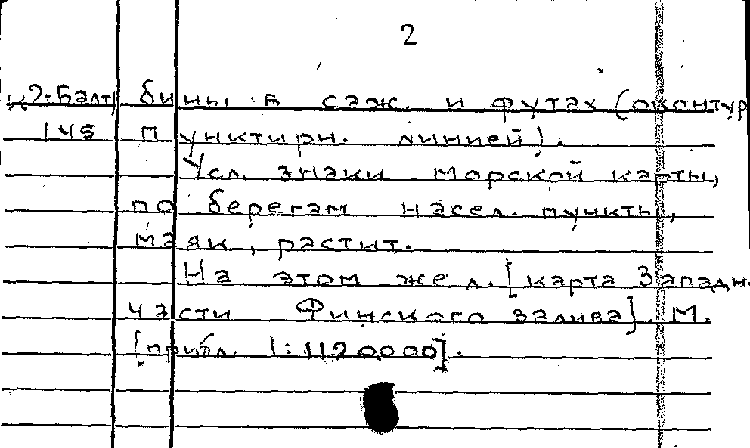 2
К2-Балт бины в саж. и футах (оконтур
145 пунктирн. линией).
Усл. знаки морской карты,
по берегам насел. пункты,
маяк, растит.
На этом же л. [карта Западн.
части Финского залива]. М.
[прибл. 1:1120000].